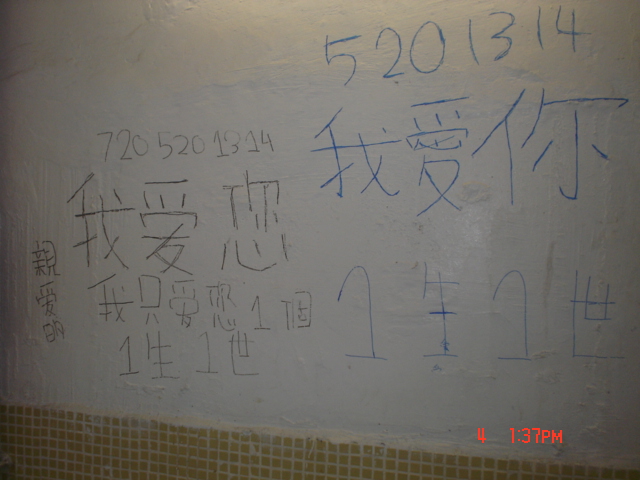 5201314
我愛你
1生1世
7205201314
我爱您
我只爱您1個
1生1世
親爱的
4 1:37PM